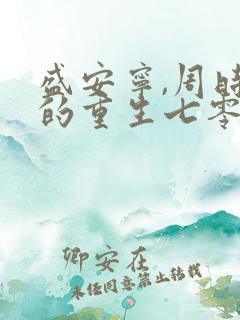 盛安宁,周时
的重生七零
卿安在
未经同意禁止转载